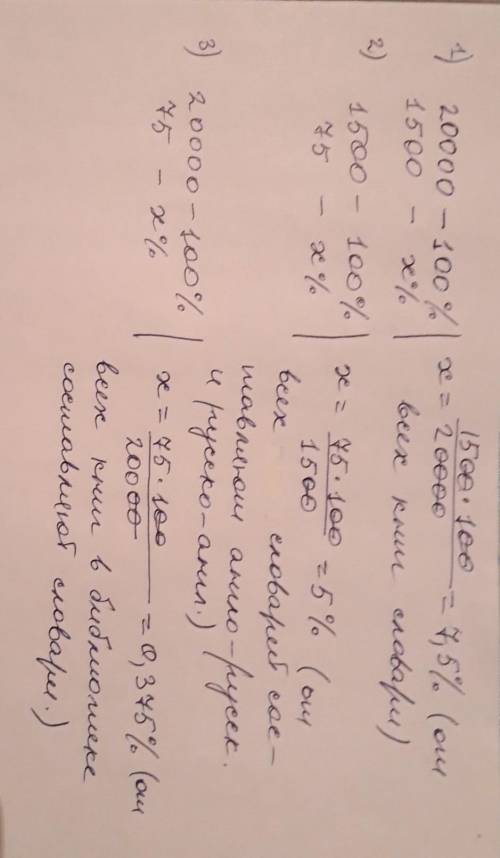 1) 20000 – 100% | x = 1500·100 / 20000 = 7,5% (от
1500 – x% | всех книг словари)
2) 1500 – 100% | x = 75·100 / 1500 = 5% (от
75 – x% | всех словарей сос-
тавляют англо-русск.
и русско-англ.)
3) 20000 – 100% | x = 75·100 / 20000 = 0,375% (от
75 – x% | всех книг в библиотеке
составляют словари.)